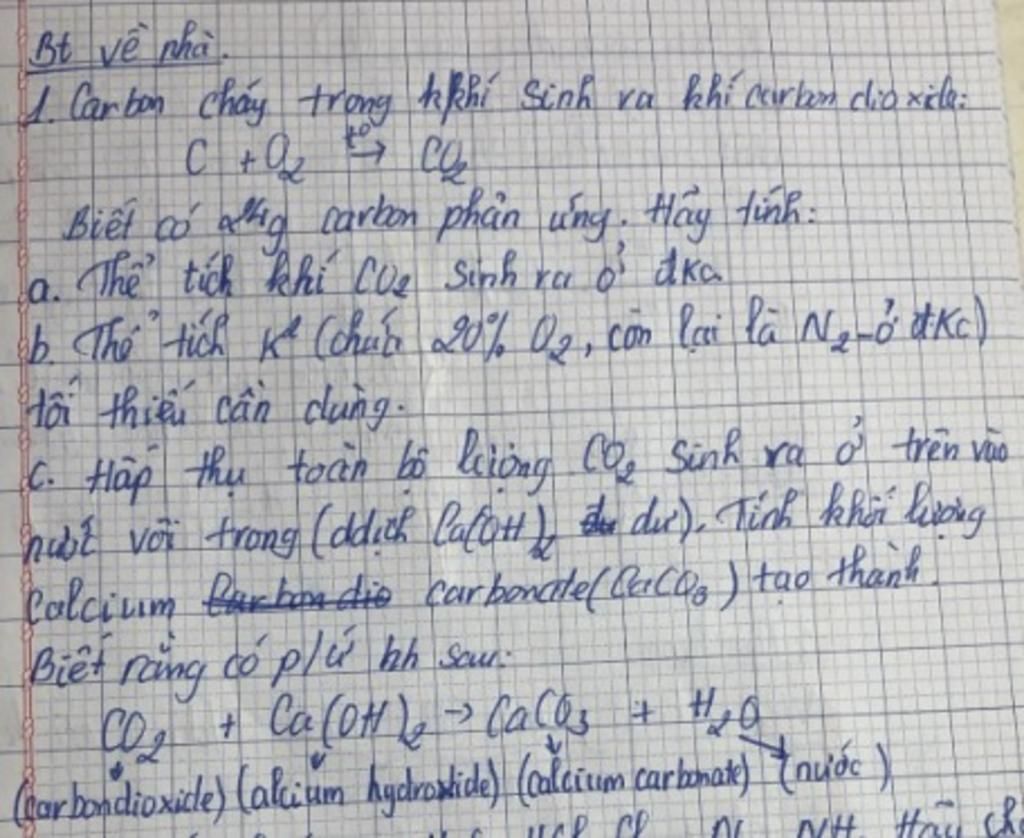 Bt về nhà.
1. Carbon cháy trong kkhí sinh ra khí carbon dioxide:
C + O2 t° → CO2
Biết có 24g carbon phản ứng. Hãy tính:
a. Thể tích khí CO2 sinh ra ở đkc
b. Thể tích k² (chứa 20% O2, còn lại là N2 - ở đkc)
tối thiểu cần dùng.
c. Hấp thụ toàn bộ lượng CO2 sinh ra ở trên vào
nước vôi trong (ddịch Ca(OH)2 dư). Tính khối lượng
Calcium carbonate (CaCO3) tạo thành.
Biết rằng có p/ứ hh sau:
CO2 + Ca(OH)2 → CaCO3 + H2O
(carbondioxide) (alcium hydroxide) (calcium carbonate) (nước)